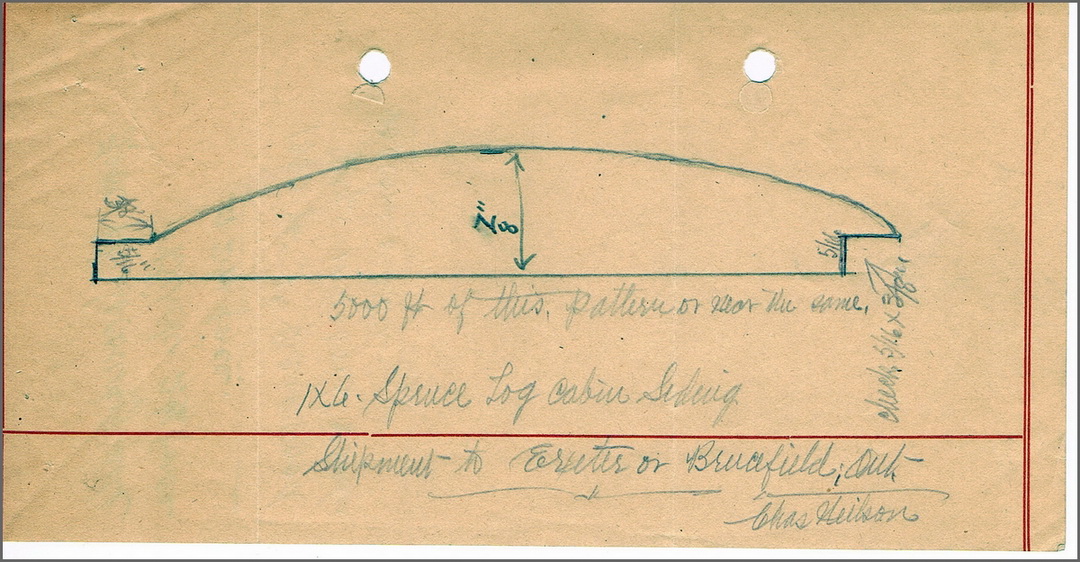 3/8"
5/16"
7/8"
5/16
check 5/16 x 3/8"
5000 ft of this pattern or near the same.
1x6. Spruce Log Cabin Siding
Shipment to Exeter or Brucefield, Ont
Chas Neilson